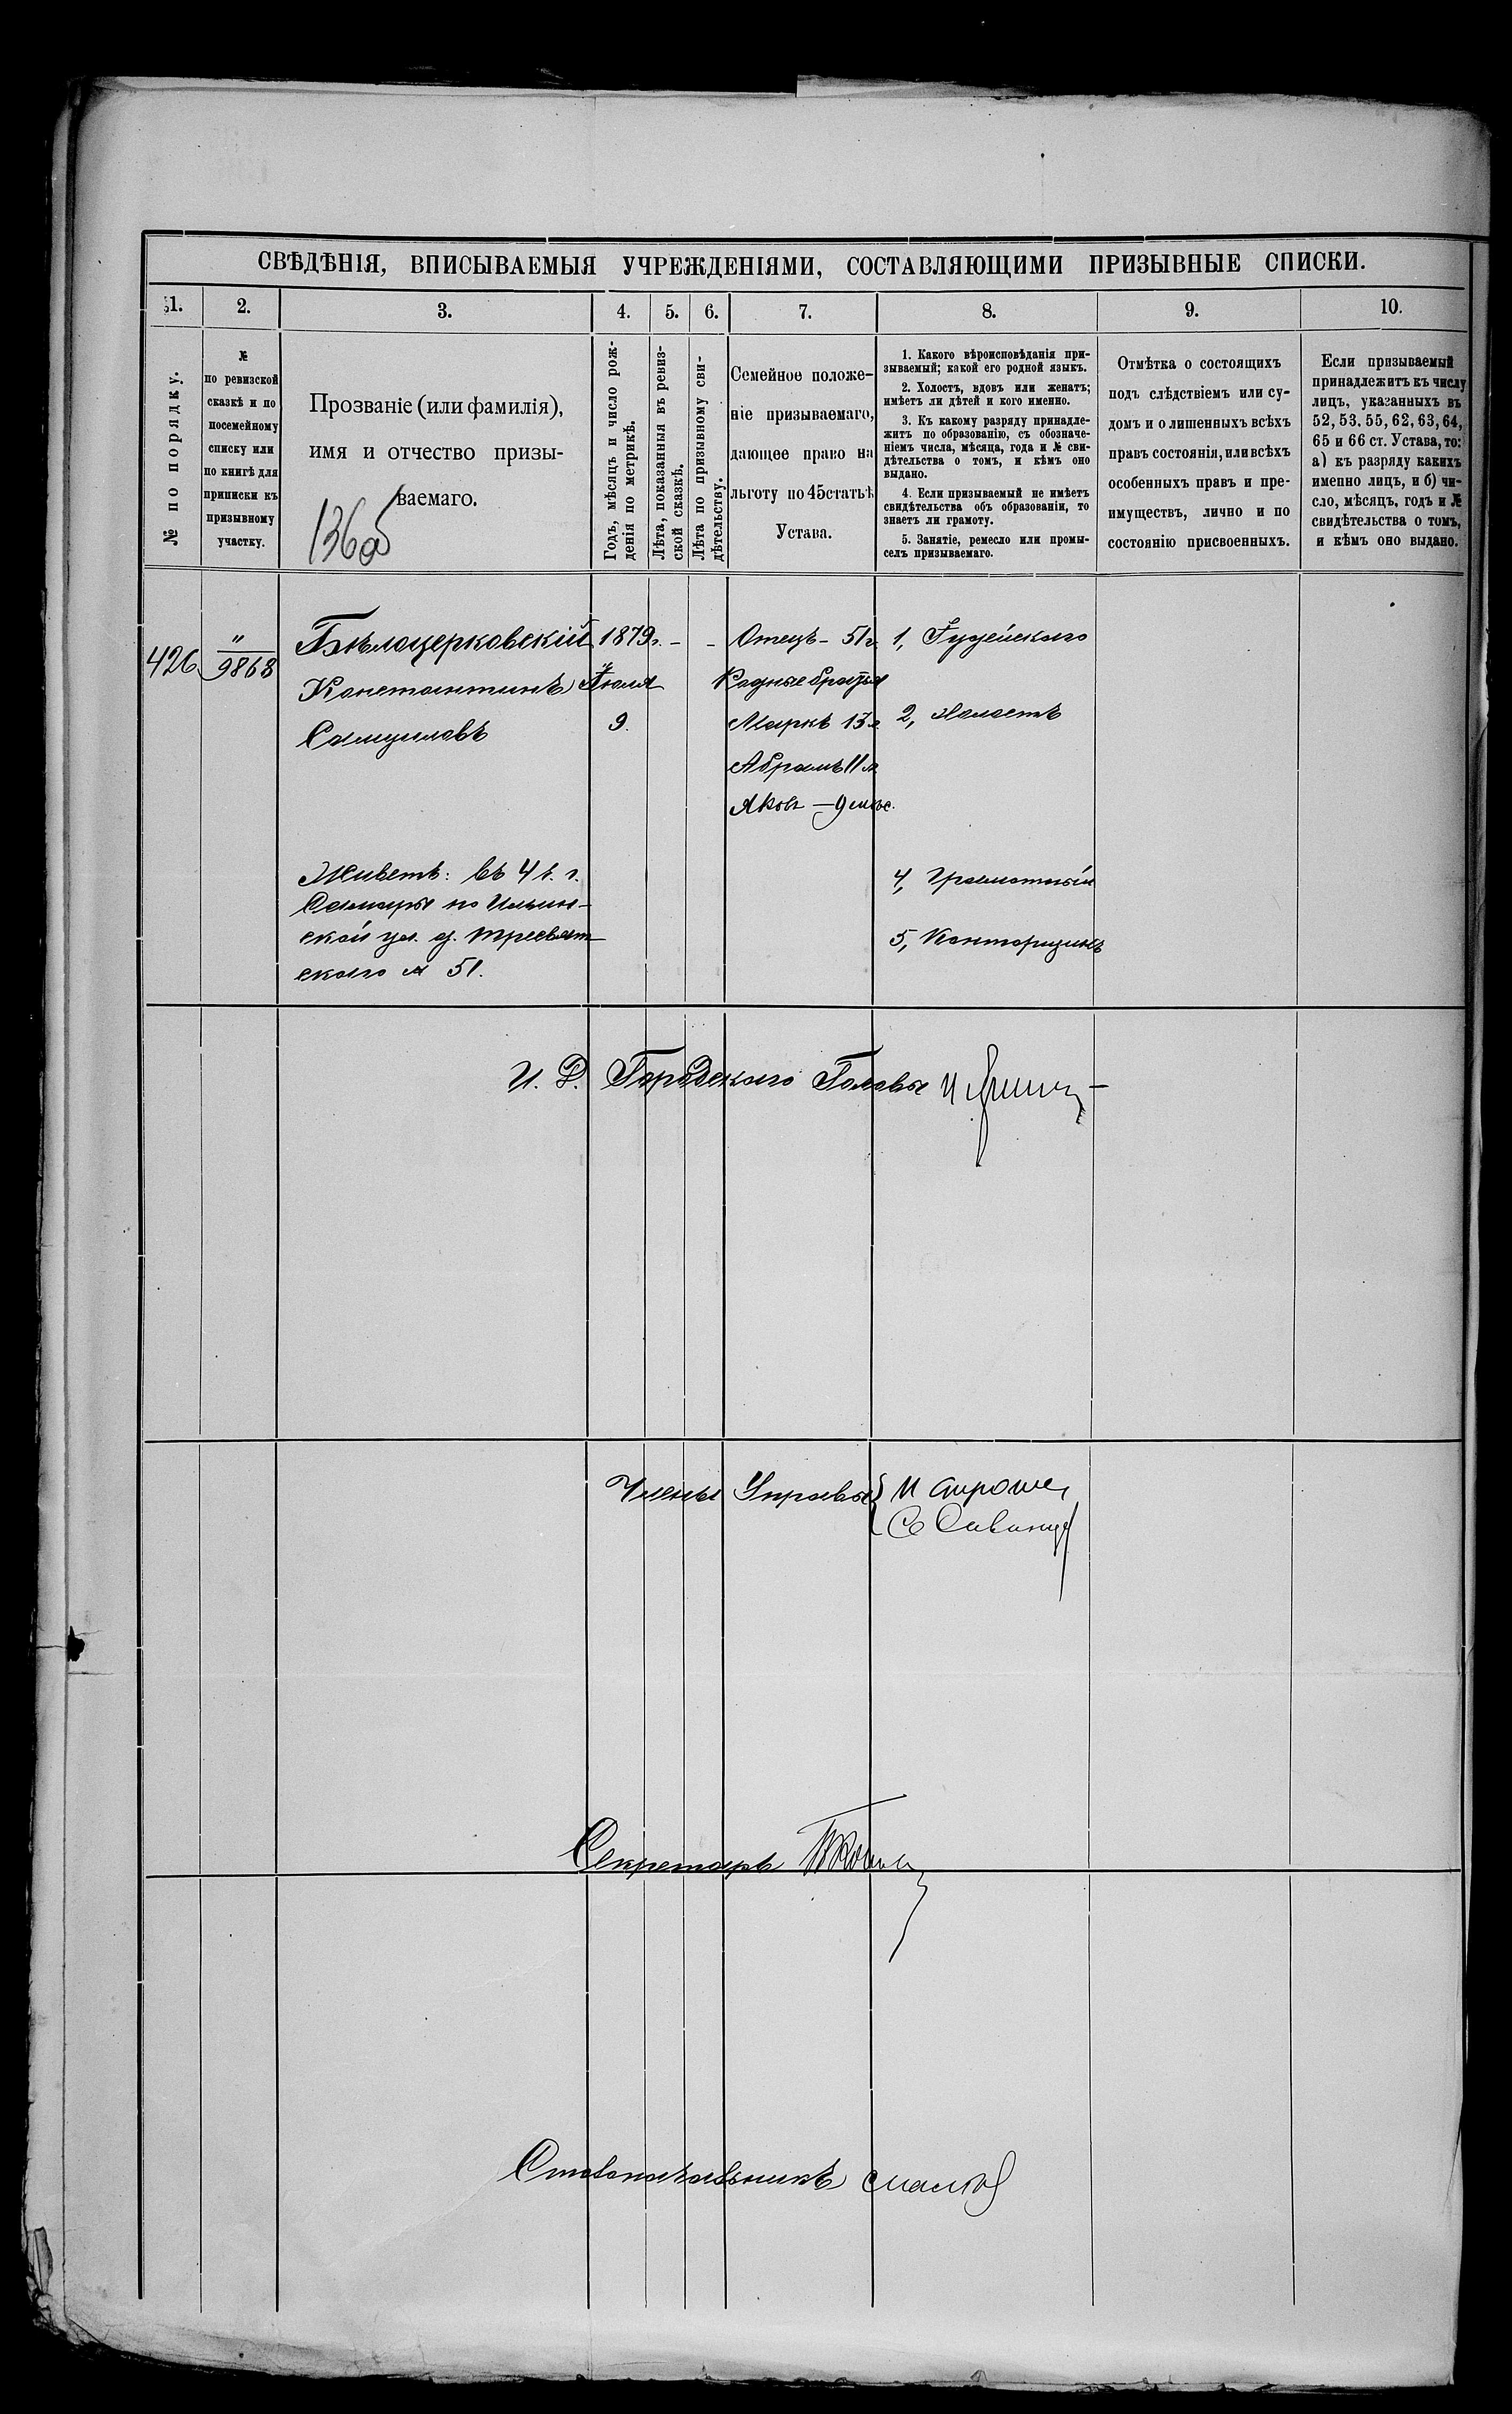 СВѢДѢНІЯ, ВПИСЫВАЕМЫЯ УЧРЕЖДЕНІЯМИ, СОСТАВЛЯЮЩИМИ ПРИЗЫВНЫЕ СПИСКИ.
1.
2.
3.
4.
5.
6.
7.
8.
9.
10.
№ по порядку.
№
по ревизской
сказкѣ и по
посемейному
списку или
по книгѣ для
приписки къ
призывному
участку.
Прозваніе (или фамилія),
имя и отчество призы-
ваемаго.
136об
Годъ, мѣсяцъ и число рож-
денія по метрикѣ.
Лѣта, показанныя въ ревиз-
ской сказкѣ.
Лѣта по призывному сви-
дѣтельству.
Семейное положе-
ніе призываемаго,
дающее право на
льготу по 45 статьѣ
Устава.
1. Какого вѣроисповѣданія при-
зываемый; какой его родной языкъ.
2. Холостъ, вдовъ или женатъ;
имѣетъ ли дѣтей и кого именно.
3. Къ какому разряду принадле-
житъ по образованію, съ обозначе-
ніемъ числа, мѣсяца, года и № сви-
дѣтельства о томъ, и кѣмъ оно
выдано.
4. Если призываемый не имѣетъ
свидѣтельства объ образованіи, то
знаетъ ли грамоту.
5. Занятіе, ремесло или промы-
селъ призываемаго.
Отмѣтка о состоящихъ
подъ слѣдствіемъ или су-
домъ и о лишенныхъ всѣхъ
правъ состоянія, или всѣхъ
особенныхъ правъ и пре-
имуществъ, лично и по
состоянію присвоенныхъ.
Если призываемый
принадлежитъ къ числу
лицъ, указанныхъ въ
52, 53, 55, 62, 63, 64,
65 и 66 ст. Устава, то:
а) къ разряду какихъ
именно лицъ, и б) чи-
сло, мѣсяцъ, годъ и №
свидѣтельства о томъ,
и кѣмъ оно выдано.
426
"
9868
Бѣлоцерковскій
Константинъ
Самуиловъ
Живетъ: въ 4 ч. г.
Самары по Ильин-
ской ул. д. Тресвят-
скаго № 51.
1879 г.
Іюля
9.
-
-
Отецъ - 51 г.
Родные братья
Маркъ 13 л.
Абрамъ 11 л.
Яковъ - 9 мѣс.
1, Іудейскаго
2, Холостъ
4, Грамотный
5, Конторщикъ
И. Д. Городского Головы
Члены Управы
Секретарь
Столоначальникъ